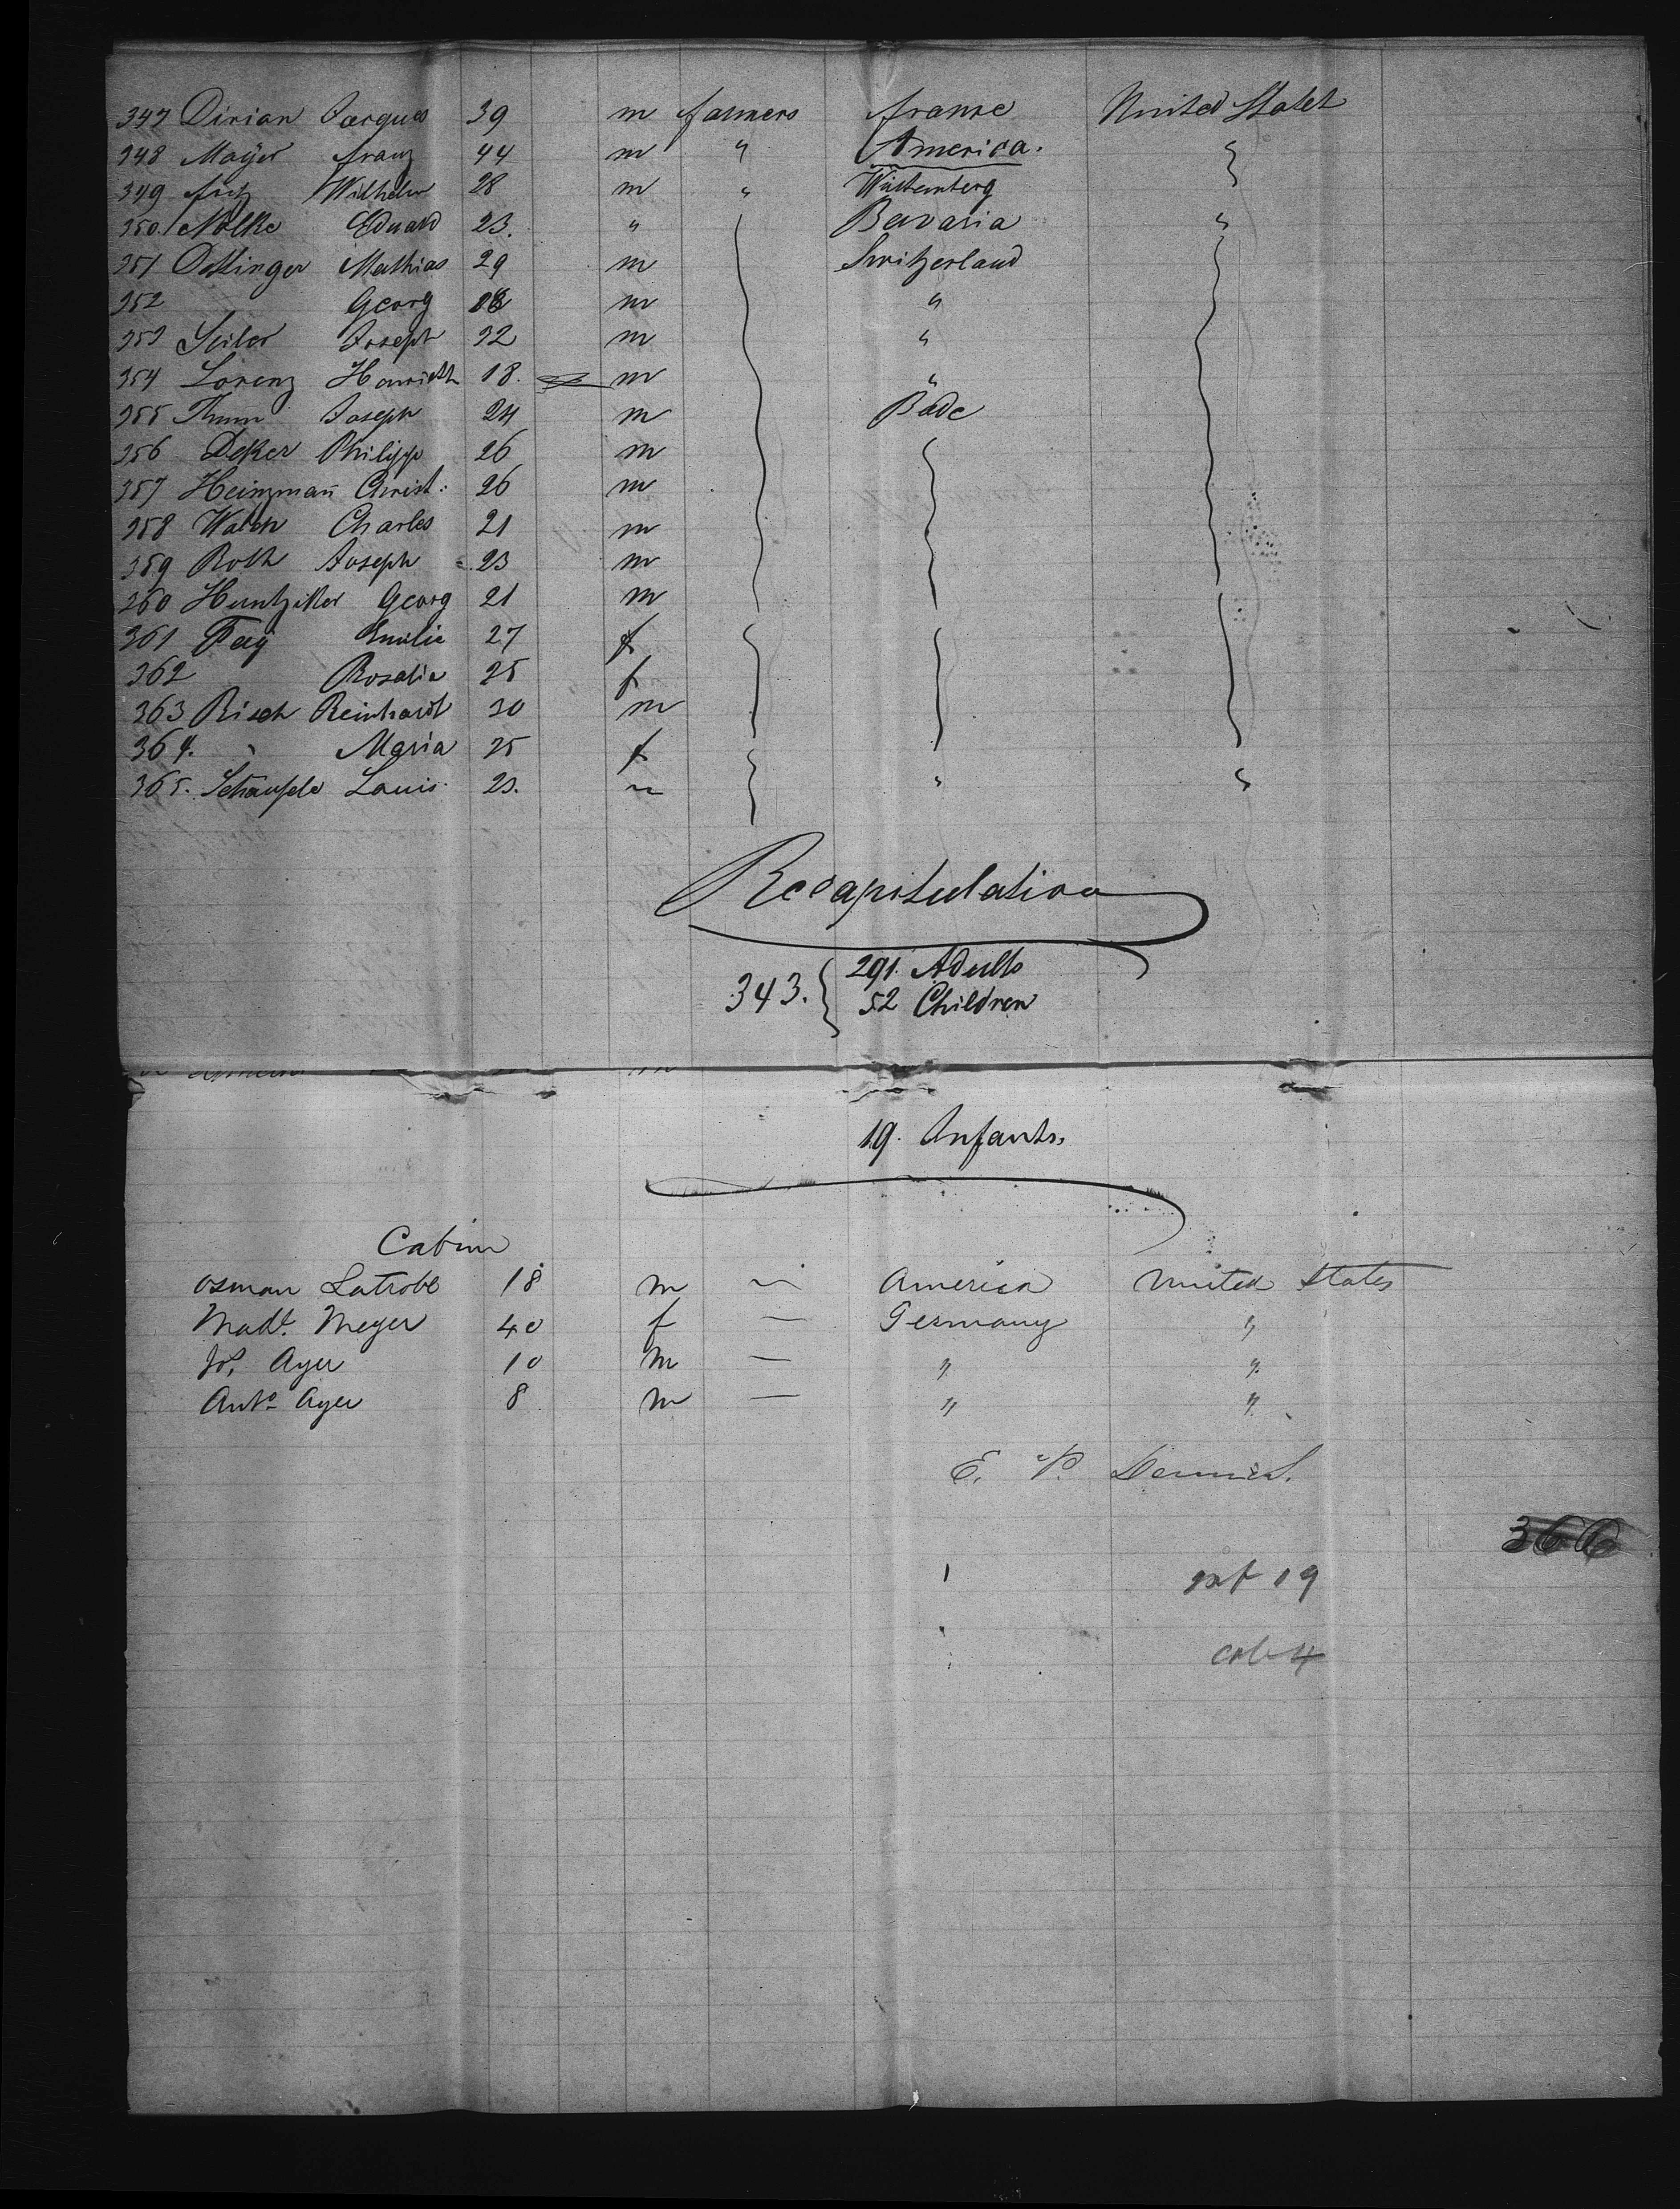 347 Dirian Jacques 39 m farmers france United States
348 Mayer franz 44 m " America. "
349 fritz Wilhelm 28 m " Würtemberg
350. Nölke Eduard 23. " Bavaria "
351 Dottinger Mathias 29 m Switzerland
352 Georg 18 m "
353 Seiler Joseph 22 m "
354 Lorenz 18. m "
355 Thum Joseph 24 m Bade
356 Deker Philipp 26 m
357 Heinzman̄ Christ: 26 m
358 Charles 21 m
359 Roth Joseph 23 m
360 Huntziker Georg 21 m
361 Fay Emilie 27 f
362 Rosalia 25 f
363 Risch Reinhardt 30 m
364. " Maria 25 f
365. Schäufele Louis 23. " "
Recapitulation
343. { 291. Adults
52 Children
19. Infants.
Cabin
Osman Latrobe 18 m — America United States
Madᵉ. Meyer 40 f — Germany "
Jos. Ayer 10 m — " "
Antᵒ Ayer 8 m — " "
E. P.
366
inf 19
cab 4